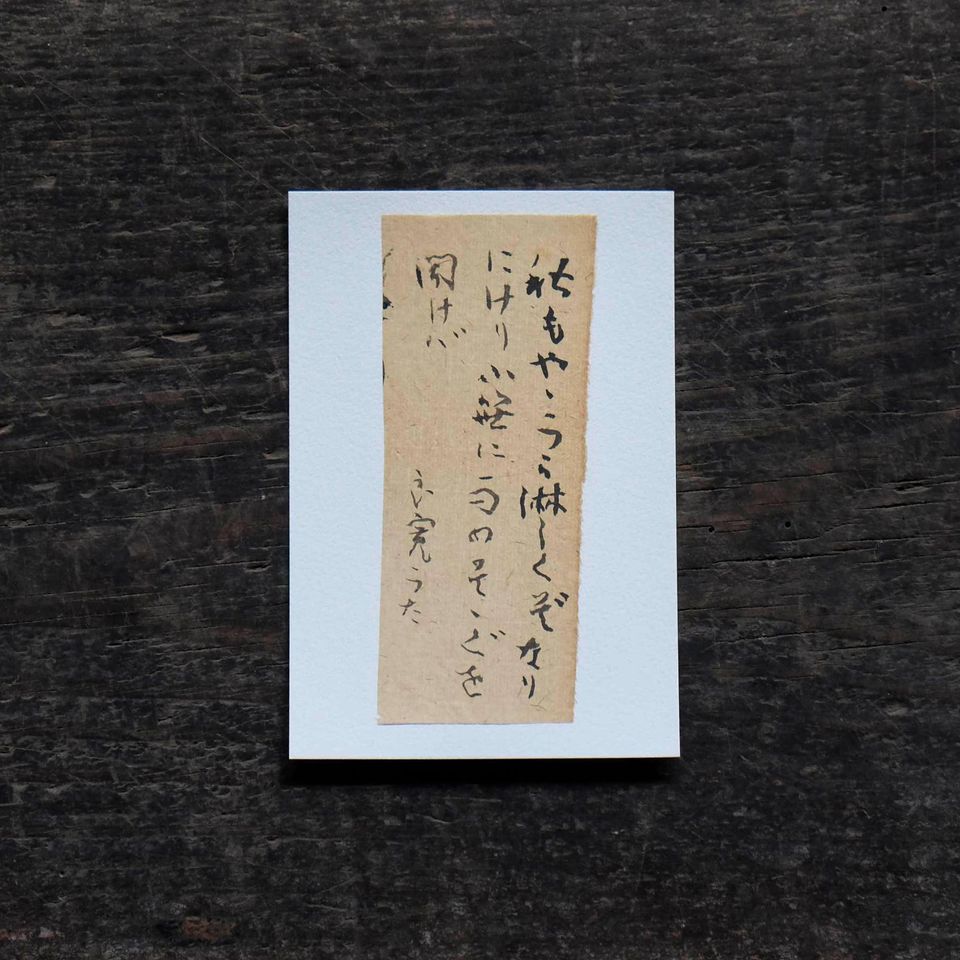 秋もやゝうら淋しくぞなり
にけり 小笹に雨のそゝぐを
聞けば
良寛うた